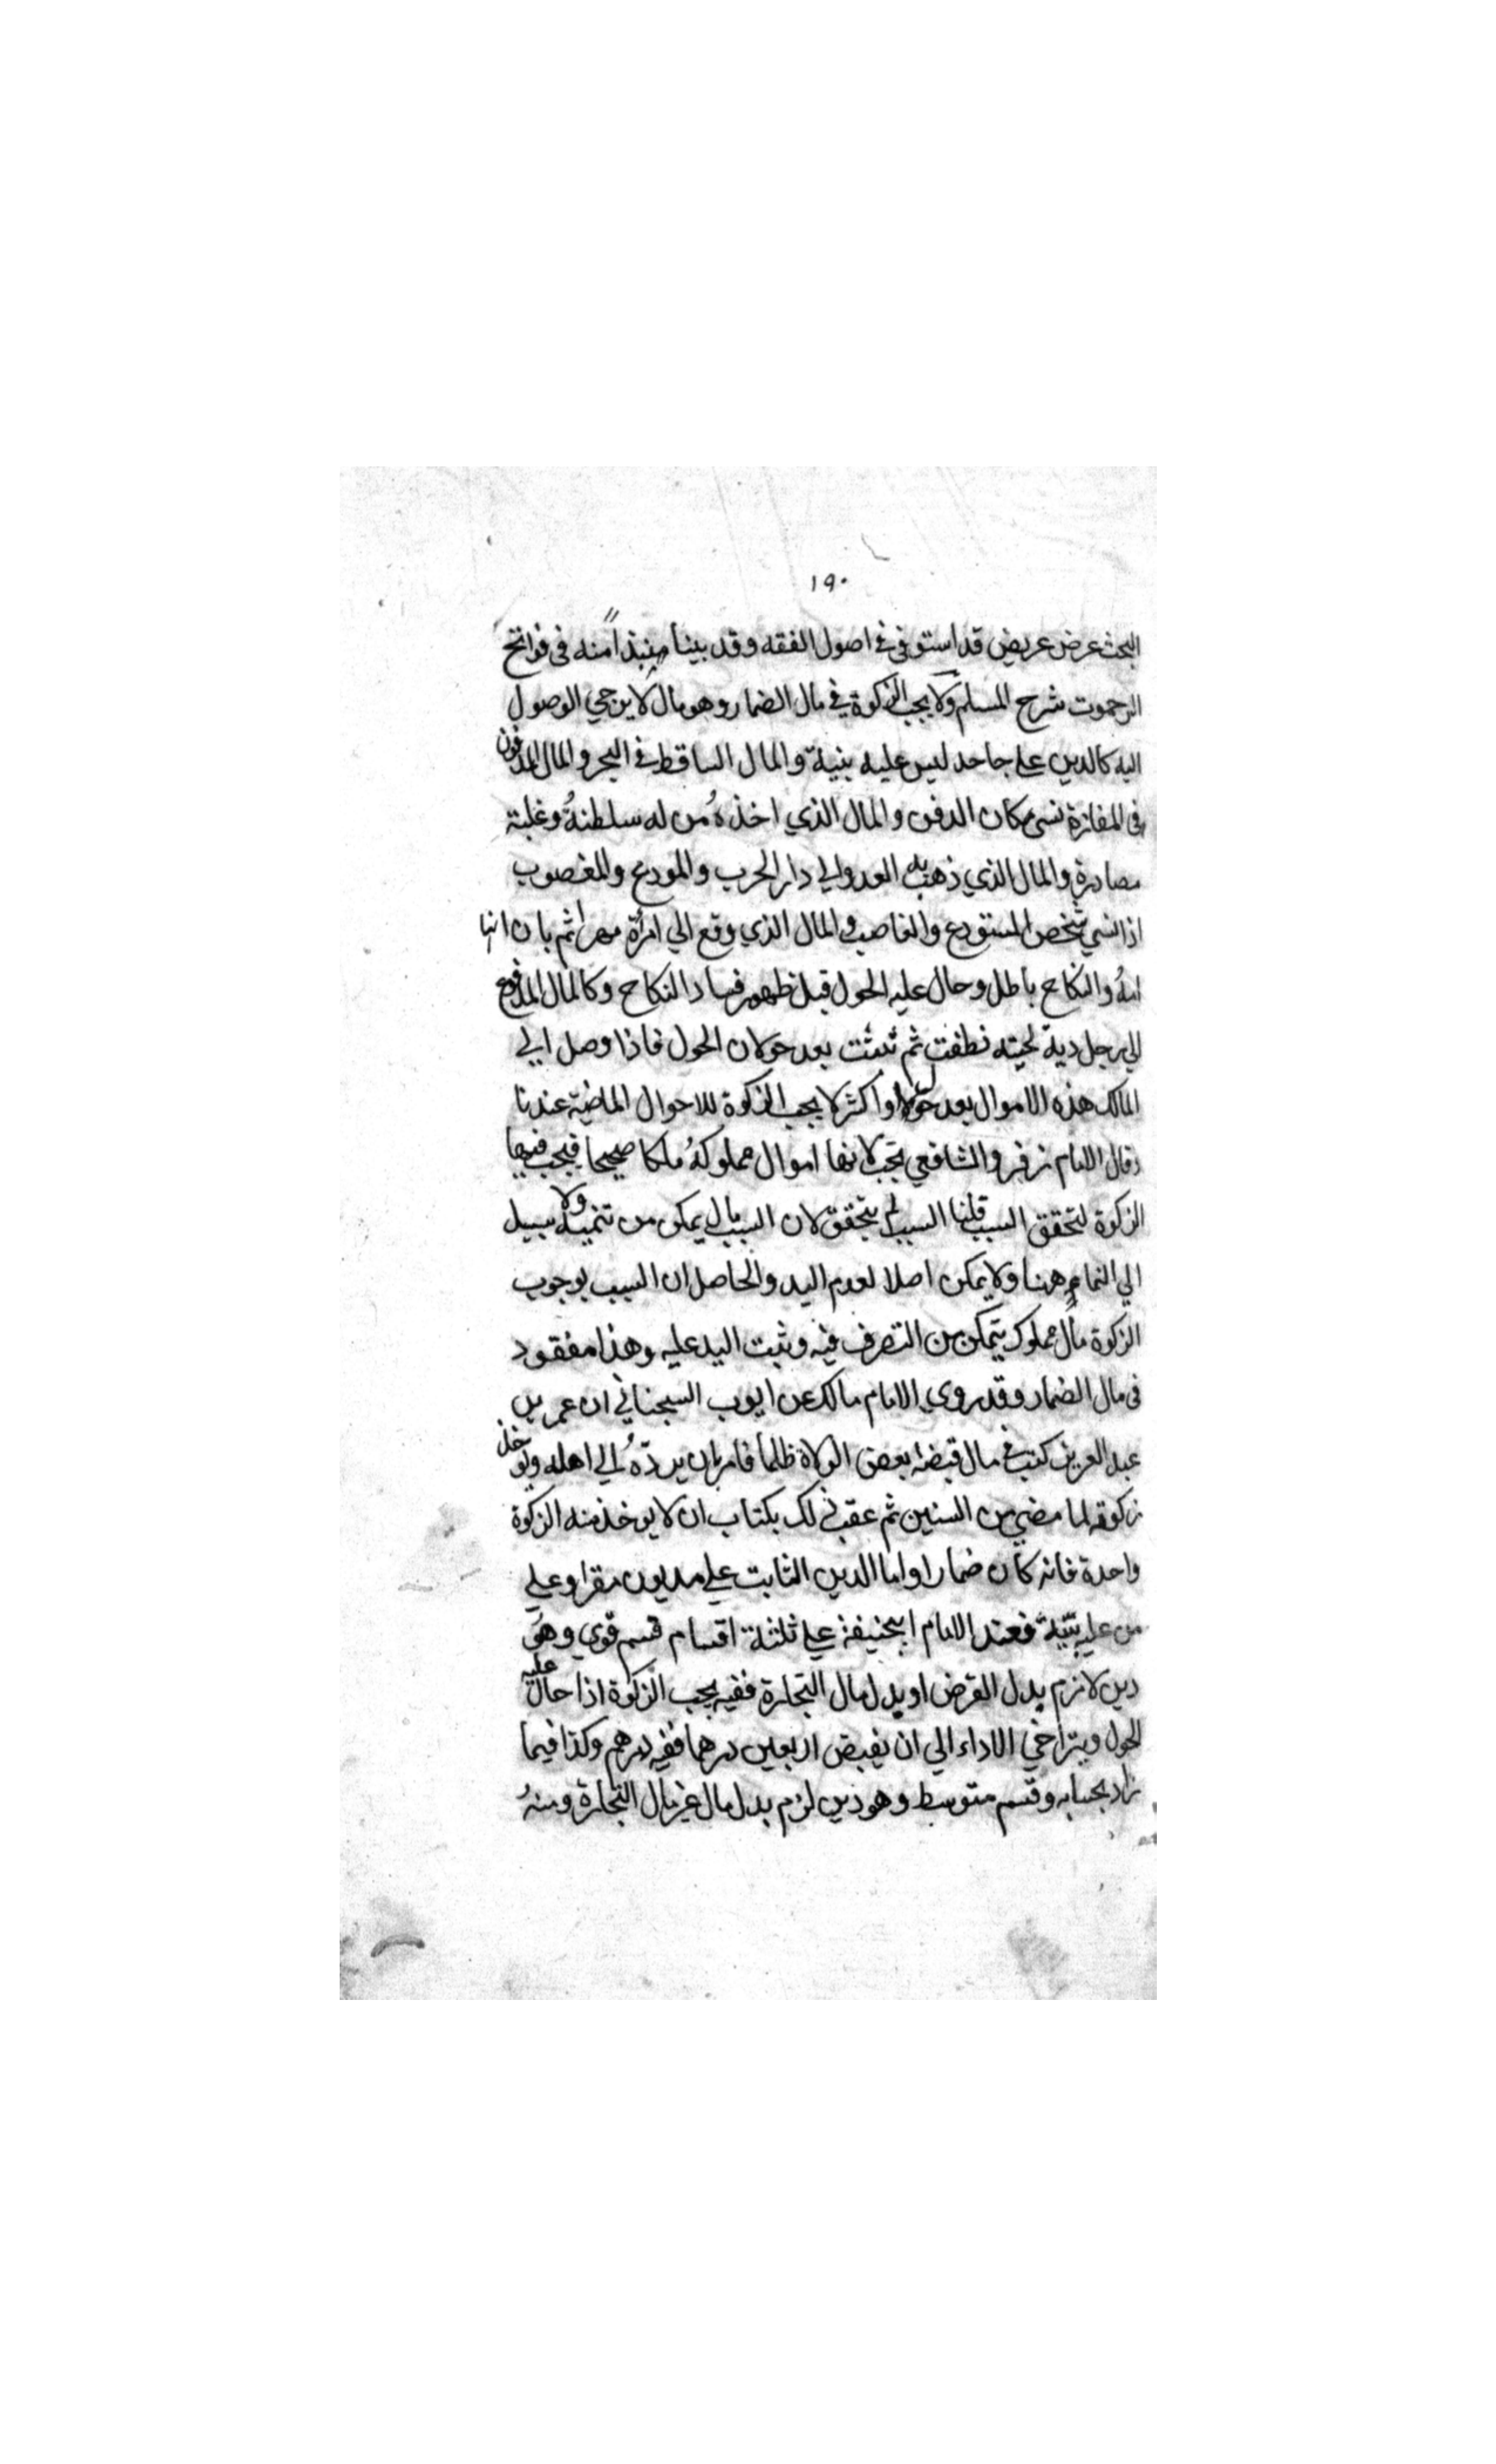 ١٩٠
البحث عرض عريض قد استوفى في اصول الفقه وقد بينا نبذا منه في فواتح
الرحموت شرح المسلم ولا يجب الزكوة في مال الضمار وهو مال لا يرجي الوصول
اليه كالدين علي جاحد ليس عليه بينة والمال الساقط في البحر والمال المدفون
في المفازة نسى مكان الدفن والمال الذي اخذهُ من له سلطنةُ وغلبة
مصادرة والمال الذي ذهب به العدو الي دار الحرب والمودع والمغصوب
اذا نسي شخص المستودع والغاصب والمال الذي وقع الي امرأة مهرا ثم بان انها
امةُ والنكاح باطل وحال عليه الحول قبل ظهور فساد النكاح وكالمال المدفوع
الي رجل دية لحيته ثم نبتت بعد حولان الحول فاذا وصل الي
المالك هذه الاموال بعد حول او اكثر لا يجب الزكوة للاحوال الماضية عندنا
وقال الامام زفر والشافعي تجب لانها اموال مملوكةُ ملكا صحيحا فيجب فيها
الزكوة لتحقق السبب قلنا السبب لم يتحقق لان السبب مال يمكن من تنميته ولا سبيل
الي النماء ههنا ولا يمكن اصلا لعدم اليد والحاصل ان السبب لوجوب
الزكوة مالٌ مملوك يتمكن من التصرف فيه وثبت اليد عليه وهذا مفقود
في مال الضمار وقد روي الامام مالك عن ايوب السجتاني ان عمر بن
عبد العزيز كتب في مال قبضهُ بعض الولاة ظلما فامر بان يردّهُ الي اهله ويوخذ
زكوته لما مضي من السنين ثم عقب ذلك بكتاب ان لا يوخذ منه الزكوة
واحدة فانه كان ضمارا واما الدين الثابت علي مديون مقر او علي
من عليه بينة فعند الامام ابيحنيفة علي ثلثة اقسام قسم قوي وهو
دين لازم بدل القرض او بدل مال التجارة ففيه يجب الزكوة اذا حال عليه
الحول ويتراخي الاداء الي ان يقبض اربعين درهما ففيه درهم وكذا فيما
زاد بحسابه وقسم متوسط وهو دين لزم بدل مال غير مال التجارة ومنهُ